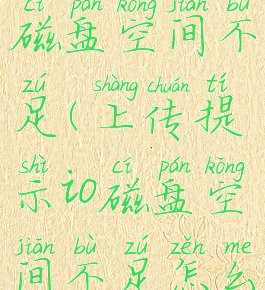 cí pán kōng jiān bù
磁盘空间不
zú shàng chuán tí
足(上传提
shì cí pán kōng
示io磁盘空
jiān bù zú zěn me
间不足怎么